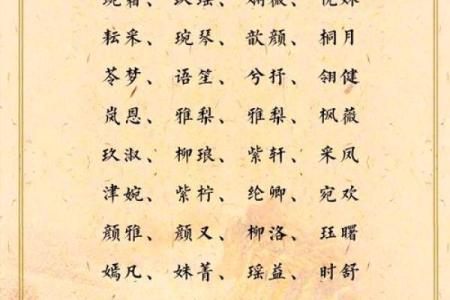 耘采、 琬琴、 歆颜、 桐月
苓梦、 语笙、 兮扜、 翎健
岚恩、 雅梨、 雅梨、 枫薇
玖淑、 柳琅、 紫轩、 采凤
津婉、 紫柠、 纶卿、 宛欢
颜雅、 颜又、 柳洛、 珏曙
嫣凡、 妹菁、 瑶益、 时舒